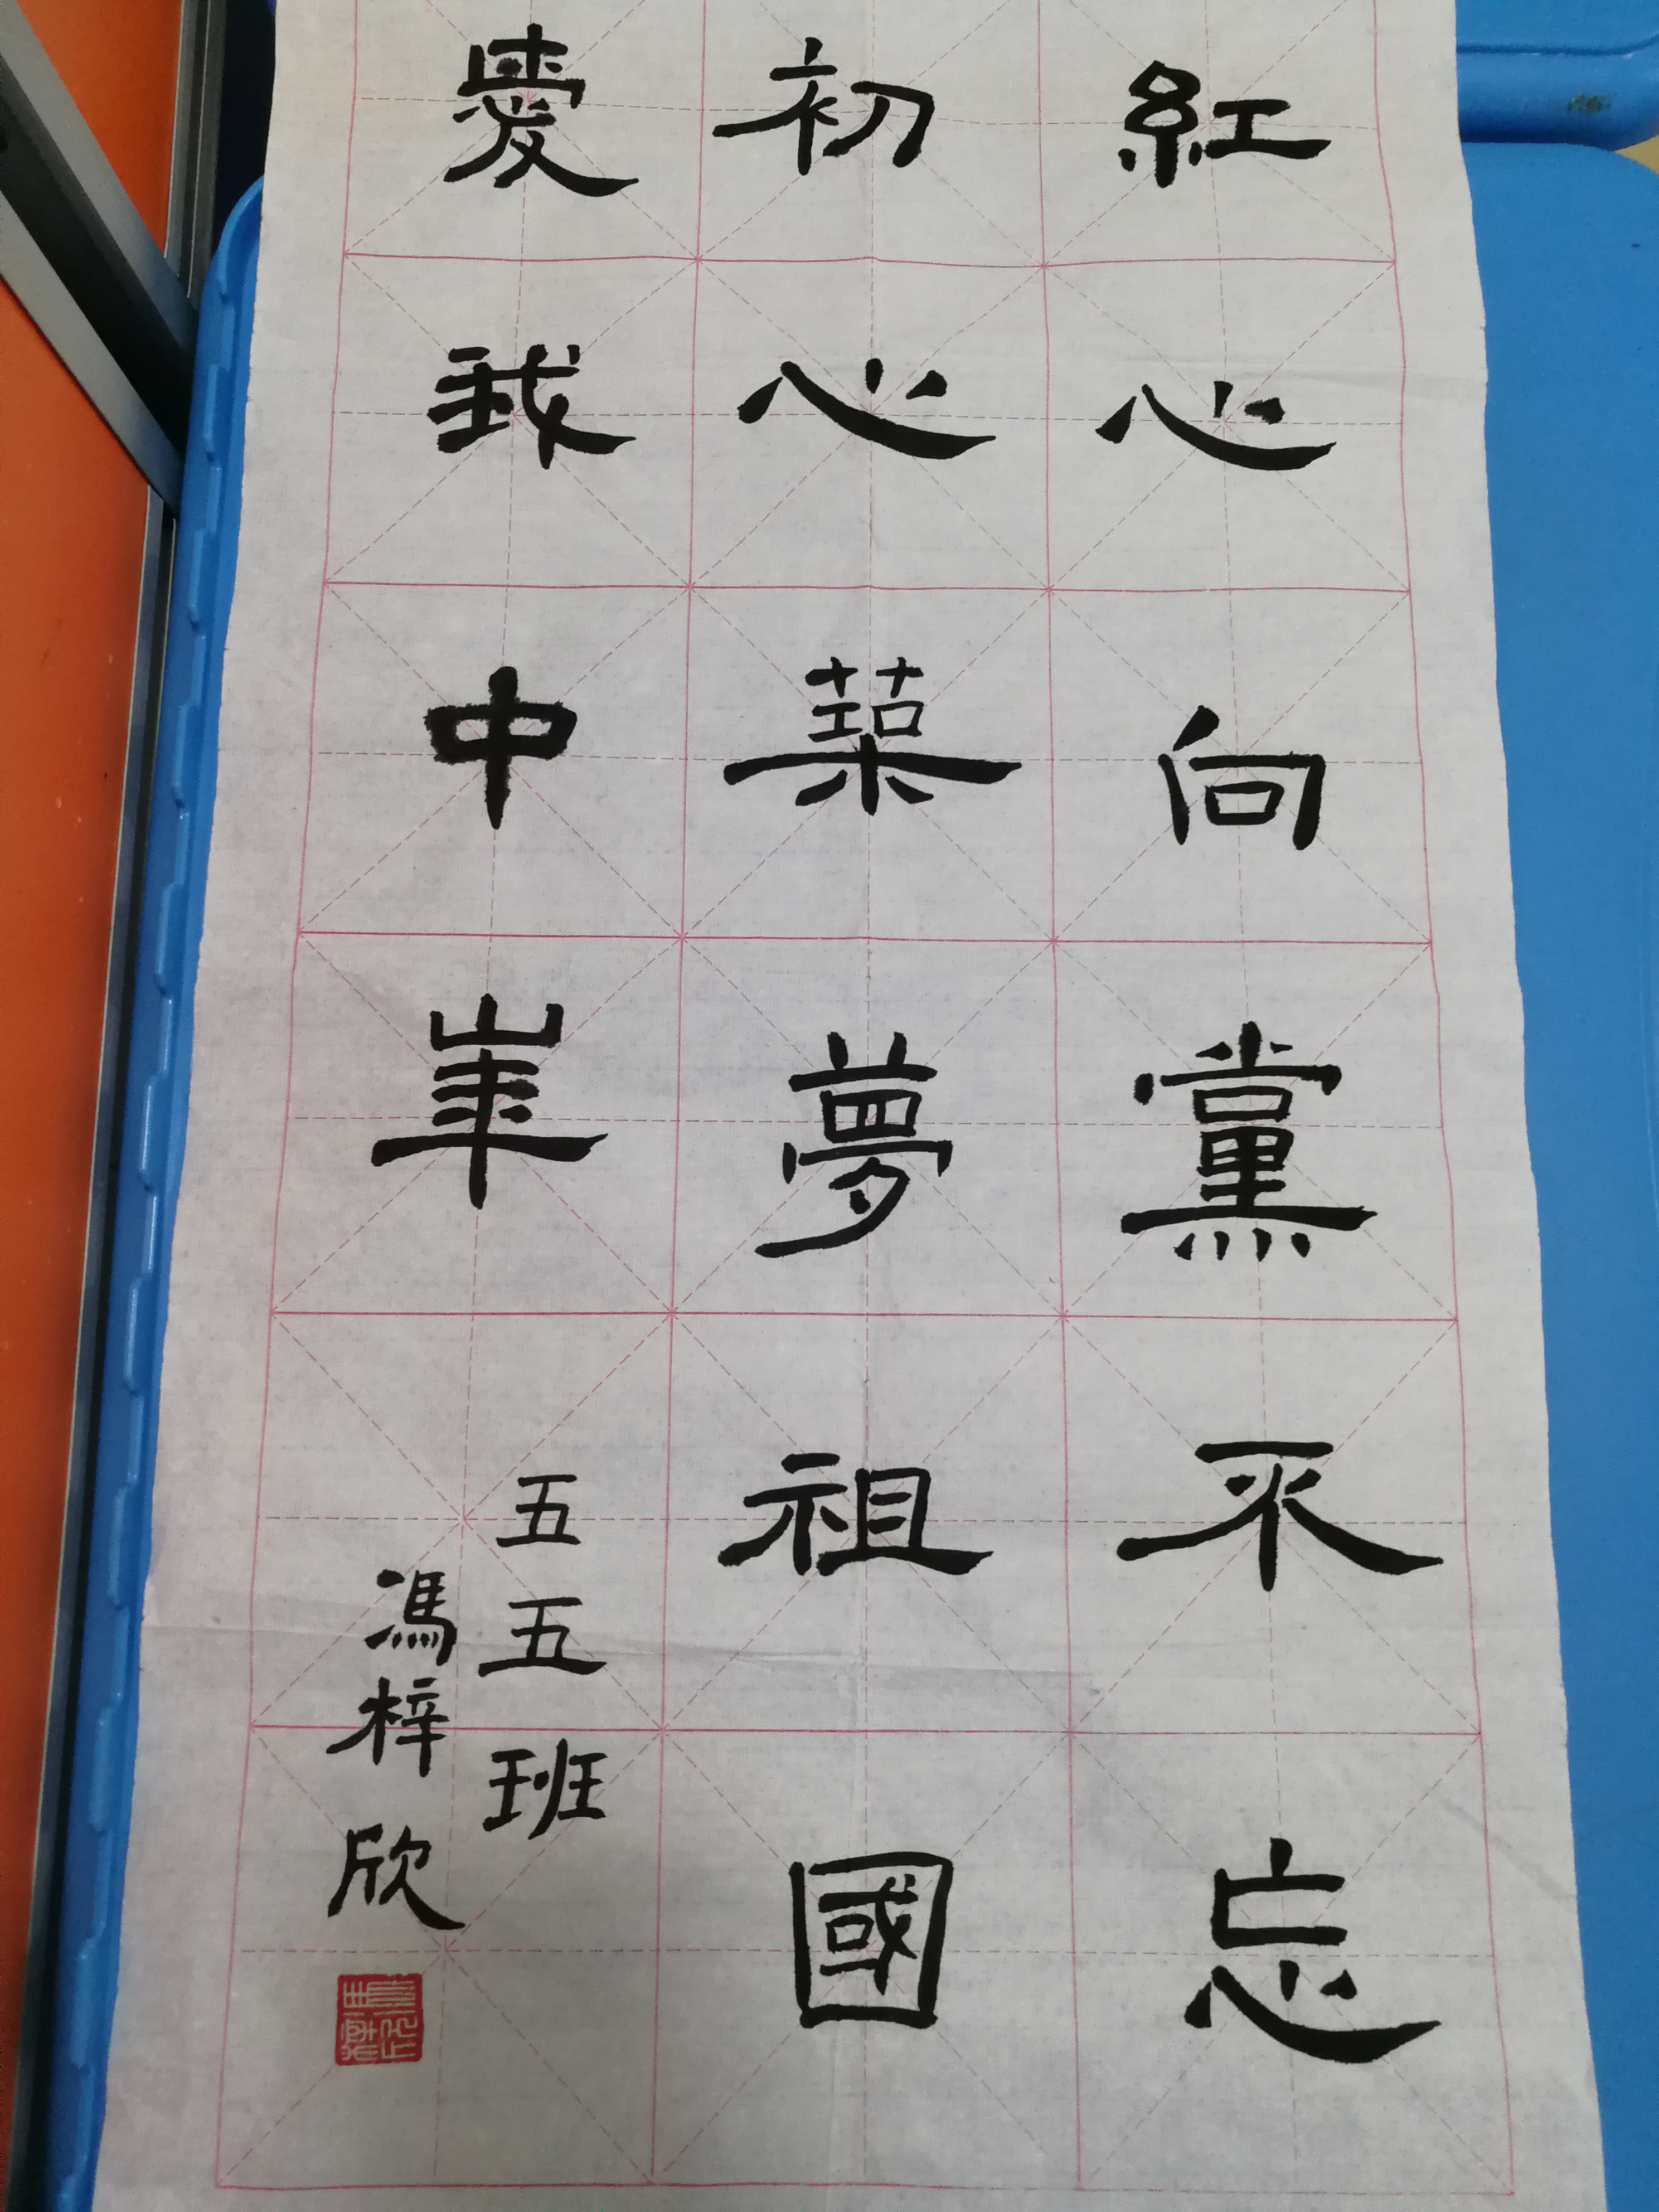 紅心向黨不忘
初心築夢祖國
愛我中華
五五班
馮梓欣